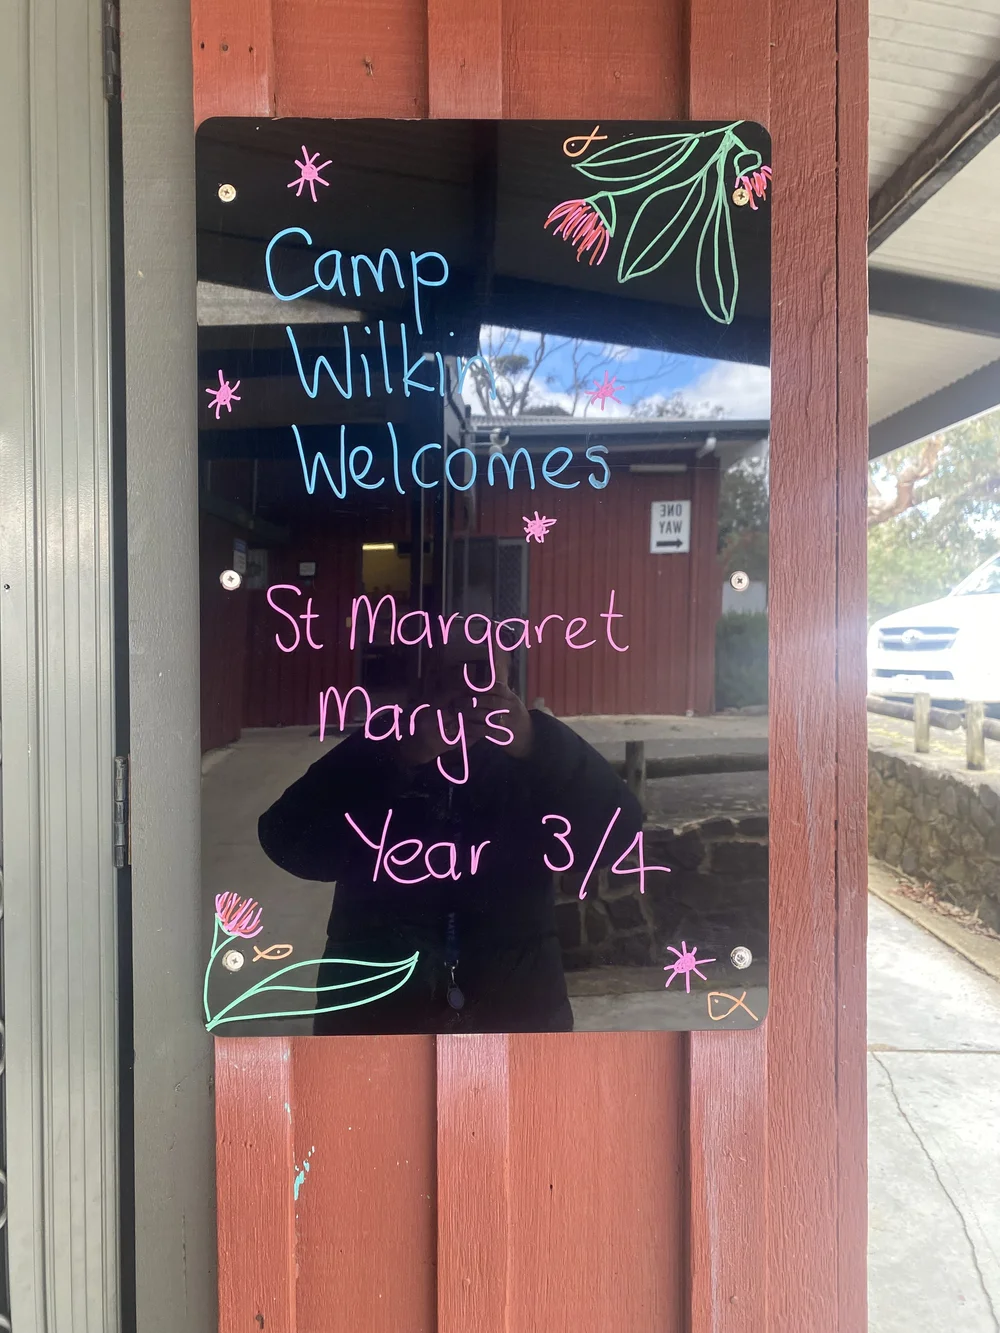 Camp
Wilkin
Welcomes
ONE
WAY
St Margaret
Mary's
Year 3/4